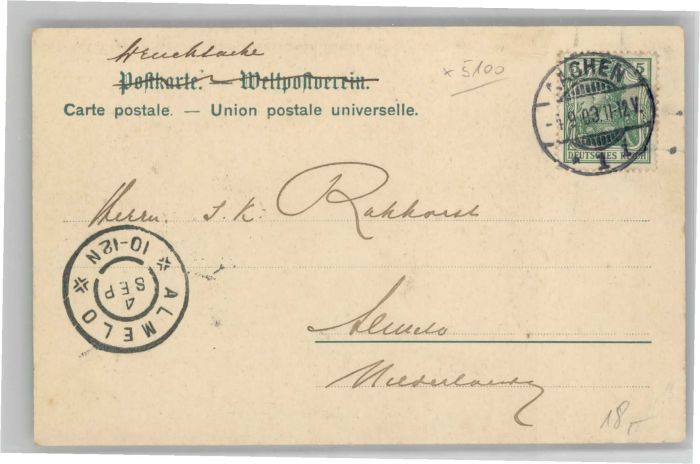 Drucksache
Postkarte. — Weltpostverein.
Carte postale. — Union postale universelle.
x 5100
5
AACHEN
4.9.03.11-12 V.
* 1 1.
DEUTSCHES REICH
Herrn. J. K. Rakhorst
10-12N
4
SEP
ALMELO
Almelo
Niederlande
18,-